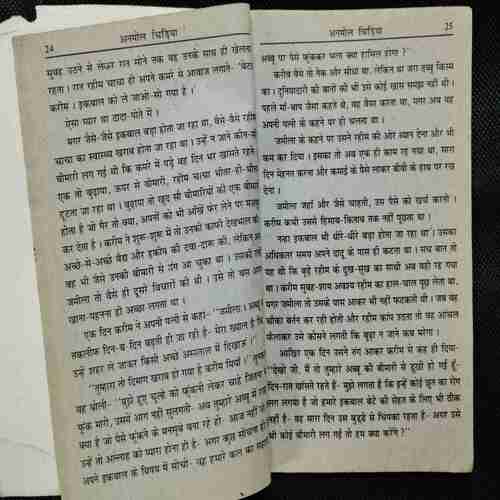 24
अनमोल चिड़िया
सुबह उठने से लेकर रात सोने तक वह उनके साथ ही खेलता
रहता। रात रहीम चाचा ही अपने कमरे से आवाज लगाते- "बेटा
करीम। इकबाल को ले जाओ-सो गया है।
ऐसा प्यार था दादा-पोते में।
मगर जैसे-जैसे इकबाल बड़ा होता जा रहा था, वैसे-वैसे रहीम
चाचा का स्वास्थ्य खराब होता जा रहा था। उन्हें न जाने कौन-सी
बीमारी लग गई थी कि कमरे में पड़े वह दिन भर खांसते रहते।
एक तो बुढ़ापा, ऊपर से बीमारी, रहीम चाचा भीतर-ही-भीतर
टूटता जा रहा था। बुढ़ापा तो खुद सौ बीमारियों की एक बीमारी
होता है जो गैर तो क्या, अपनों को भी आँखें फेर लेने पर मजबूर
कर देता है। करीम ने शुरू-शुरू में तो उनकी काफी देखभाल की
अच्छे-से-अच्छे वैद्य और हकीम की दवा-दारू की, लेकिन अब
वह भी जैसे उनकी बीमारी से तंग आ चुका था। उसकी पत्नी
जमीला तो वैसे ही दूसरे विचारों की थी। उसे तो बस अपना
खाना-पहनना ही अच्छा लगता था।
एक दिन करीम ने अपनी पत्नी से कहा- "जमीला। अब्बू की
तकलीफ दिन-ब-दिन बढ़ती ही जा रही है- मेरा ख्याल है कि
उन्हें शहर ले जाकर किसी अच्छे अस्पताल में दिखाऊं।"
"तुम्हारा तो दिमाग खराब हो गया है करीम मियां।"
वह बोली- "मुझे हुए चूल्हे को फूंकनी लेकर चाहे जितना
फूंक मारो, उसमें आग नहीं सुलगती- अब तुम्हारे अब्बू में
क्या है जो पैसे फूंकने के मनसूबे बना रहे हो। आज नहीं तो
उन्हें तो अल्लाह को प्यारा होना ही है- अगर कुछ सोचना
अपने इकबाल के विषय में सोचो- वह हमारे कल का सहारा
अनमोल चिड़िया
25
अब्बू पर पैसे फूंककर भला क्या हासिल होगा?"
करीम वैसे तो नेक और सीधा था, लेकिन था जरा डब्बू किस्म
का। दुनियादारी की बातों की भी उसे कोई खास समझ नहीं थी।
पहले मां-बाप जैसा कहते थे, वह वैसा करता था, मगर अब वह
अपनी पत्नी के कहने पर ही चलता था।
जमीला के कहने पर उसने रहीम की ओर ध्यान देना और भी
कम कर दिया। इसका तो अब एक ही काम रह गया था, सारा
दिन मेहनत करना और कमाई के पैसे लाकर बीवी के हाथ पर रख
देना।
जमीला जहां और जैसे चाहती, उस पैसे को खर्च करती।
करीम कभी उससे हिसाब-किताब तक नहीं पूछता था।
नन्हा इकबाल भी धीरे-धीरे बड़ा होता जा रहा था। उसका
अधिकतर समय अपने दादू के पास ही कटता था। सच बात तो
यह थी कि बूढ़े रहीम के दुख-सुख का साथी अब वही रह गया
था। करीम सुबह-शाम अवश्य रहीम का हाल-चाल पूछ लेता था,
मगर जमीला तो उसके पास आकर भी नहीं फटकती थी। जब वह
चौका बर्तन कर रही होती और रहीम कांप उठता तो वह आंचल
बौखलाकर उसे कोसने लगती कि बूढ़ा न जाने कब मरेगा।
आखिर एक दिन उसने तंग आकर करीम से कह ही दिया-
"देखो जी, मैं तो तुम्हारे अब्बू की बीमारी से दुखी हो गई हूँ-
दिन-रात खांसते रहते है- मुझे लगता है कि इन्हें कोई छूत का रोग
लग लगया है जो हमारे इकबाल बेटे की सेहत के लिए भी ठीक
नहीं है- वह सारा दिन उस बुड्ढे से चिपका रहता है- अगर उसे
भी कोई बीमारी लग गई तो हम क्या करेंगे?"